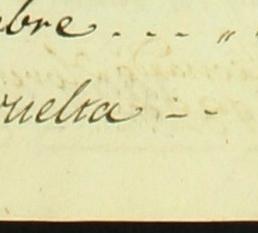 bre . . . . „ .
vuelta - -